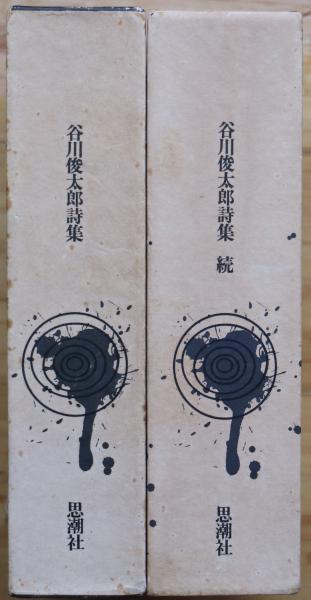 谷川俊太郎詩集
思潮社
谷川俊太郎詩集 続
思潮社